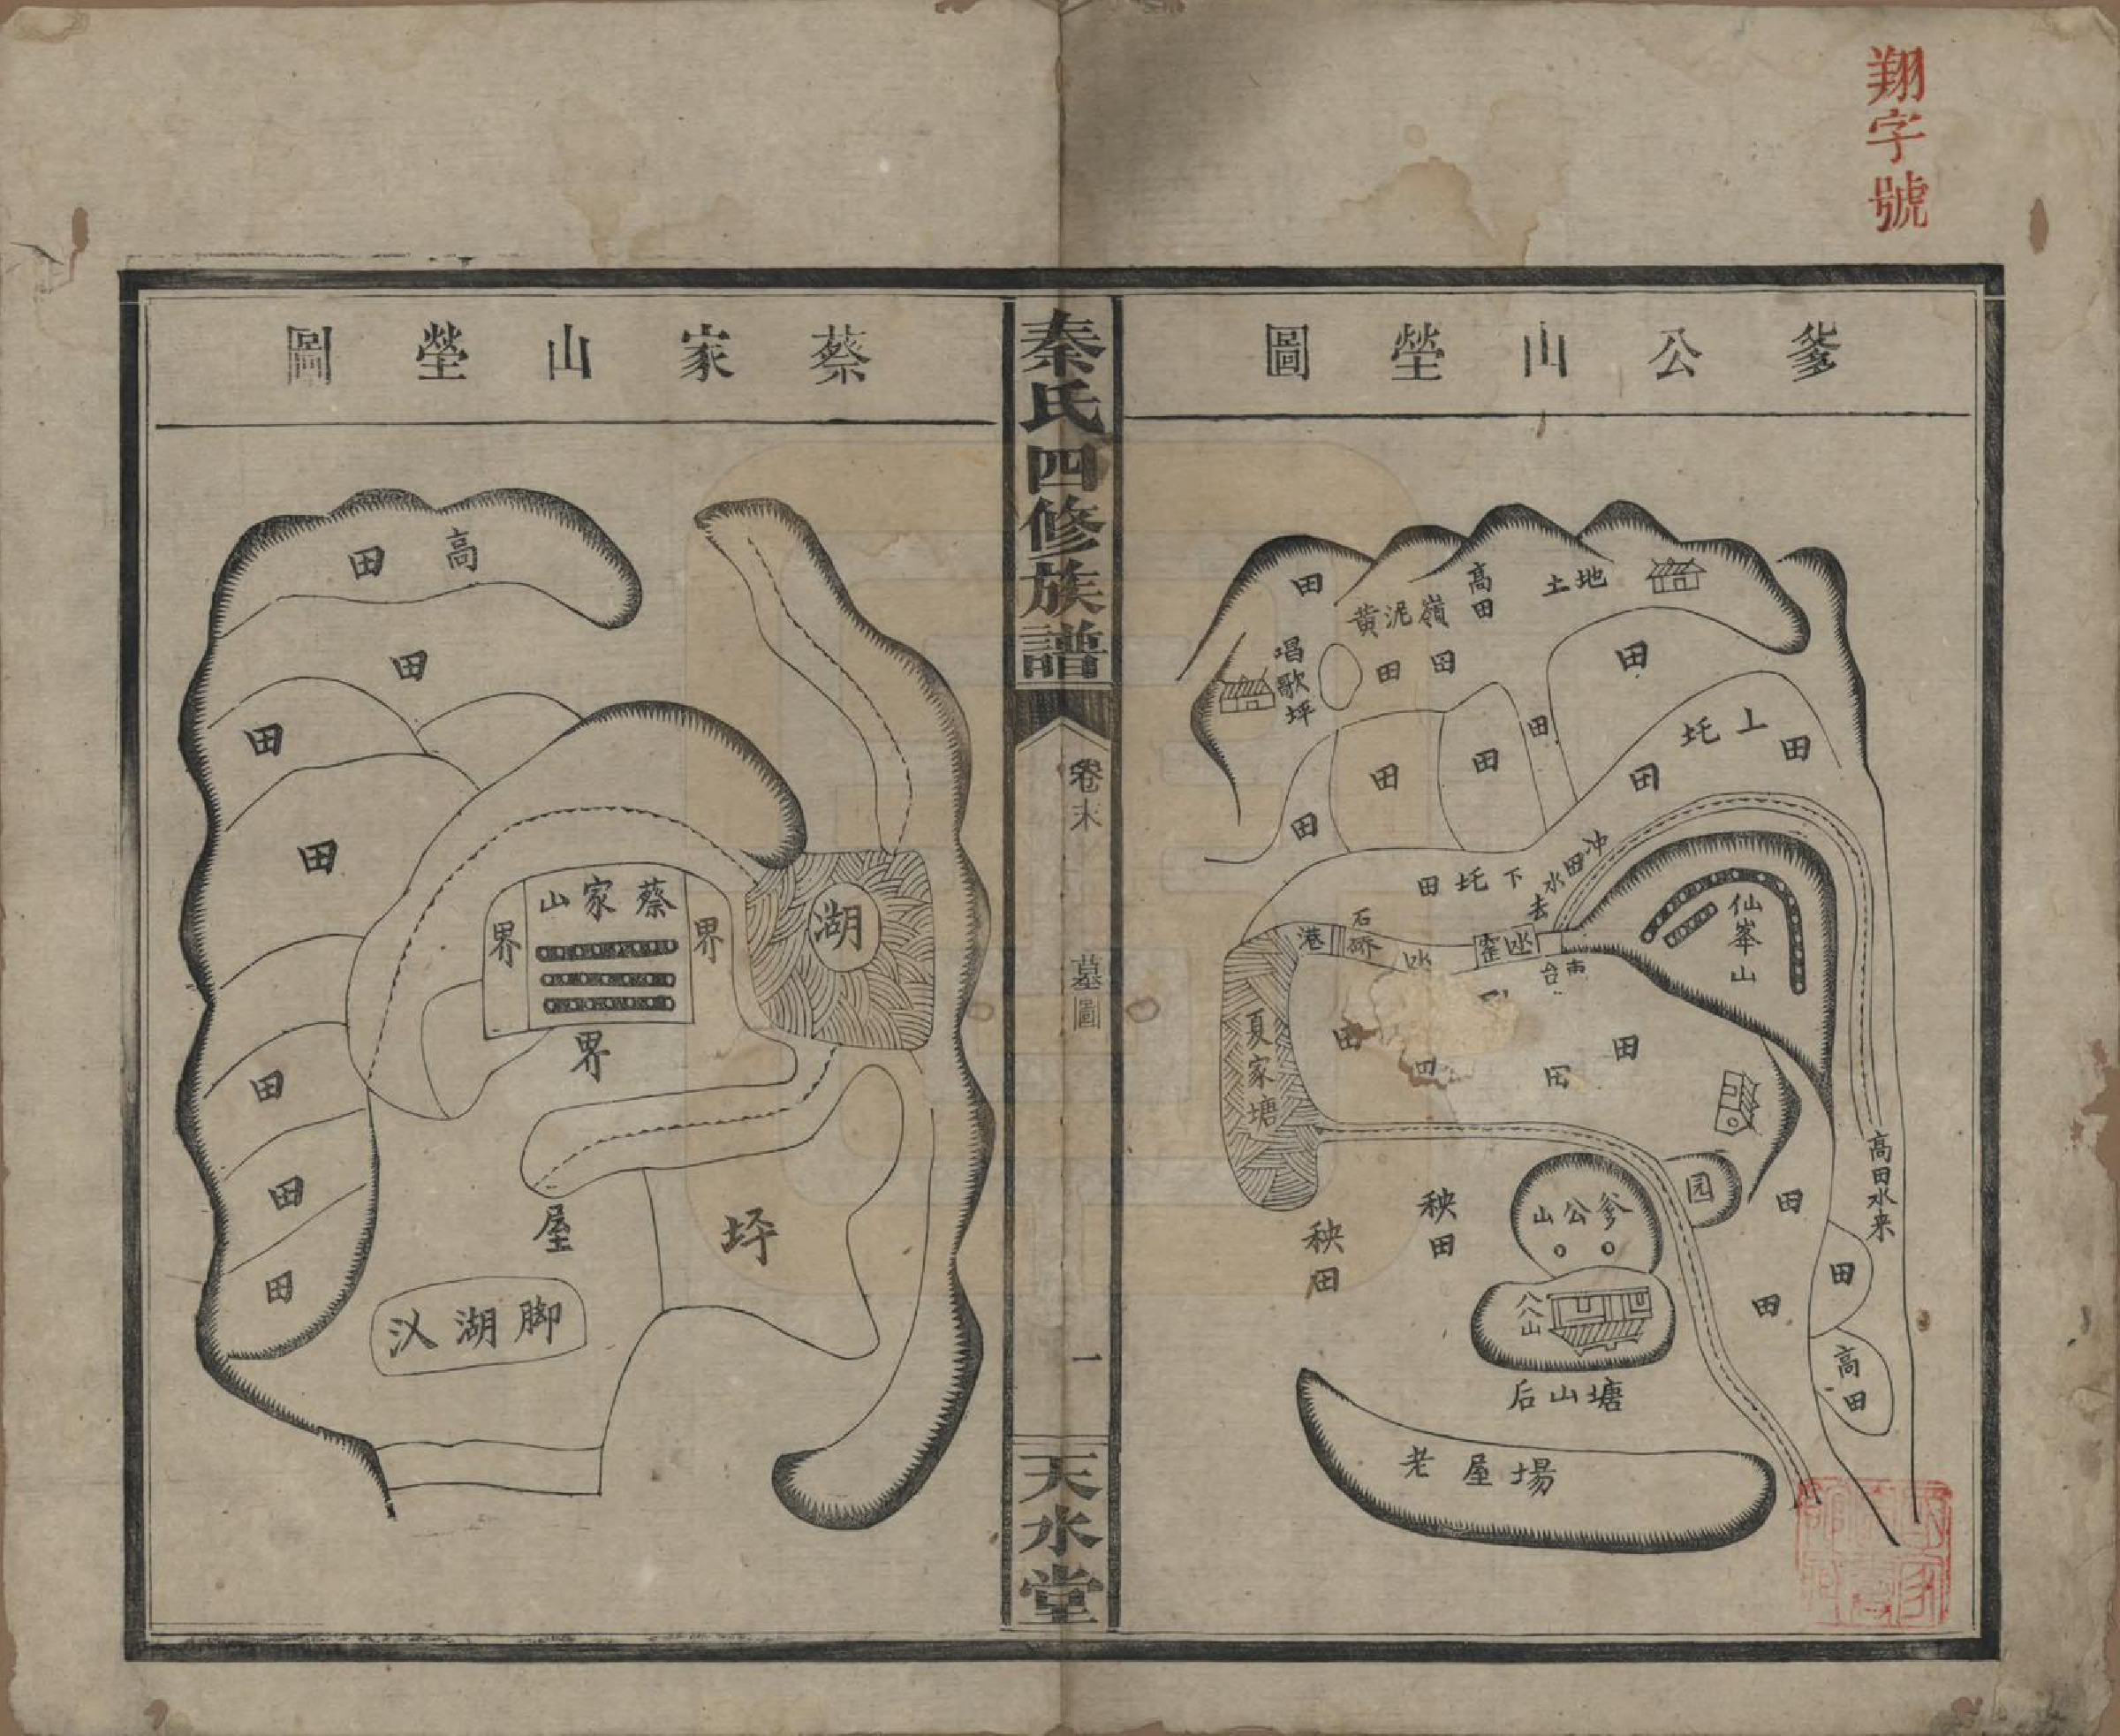 翔字號
爹公山塋圖
田
黄泥嶺
高田
土地
唱歌坪
田
田
田
上坵
田
田
田
田
田
田
冲田水去
下坵田
仙峯山
港
石磜
田
田
田
夏家塘
高田水来
园
田
爹公山
秧田
秧田
田
田
八公山
高田
后山塘
老屋場
秦氏四修族譜
卷末
墓圖
一
天水堂
蔡家山塋圖
高田
田
田
田
蔡家山
界
界
界
湖
田
田
田
屋
坪
脚湖汊